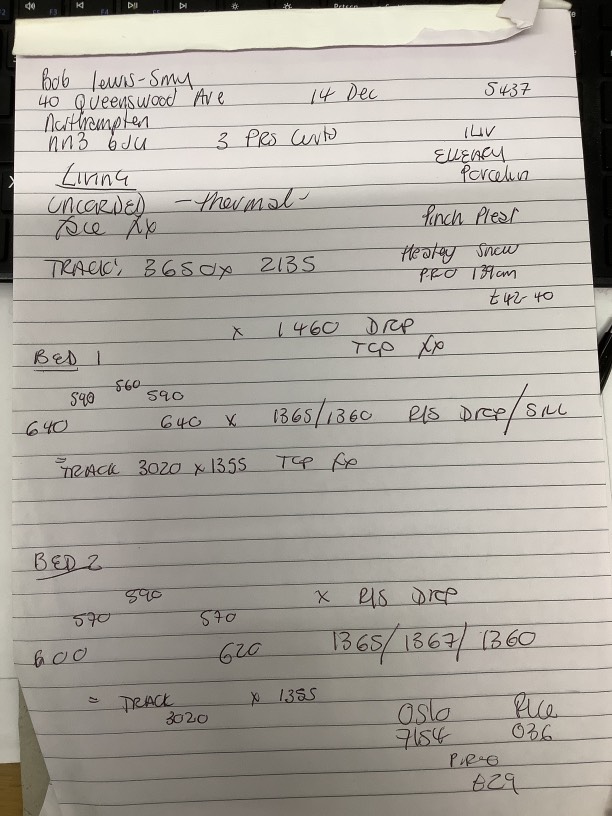 Bob Lewis-Smy
40 Queenswood Ave 14 Dec 5437
Northampton
NN3 6JU 3 PRS Curts
ELLERY
Porcelin
Living
UNCORDED - thermal -
Face Fix
Pinch Pleat
TRACK: 3650 x 2135
Snow
PRO 139cm
£42-40
x 1460 DROP
TOP Fix
BED 1
590 560 590
640 640 x 1365/1360 R/S DROP/SILL
= TRACK 3020 x 1355 TOP Fix
BED 2
590 x R/S DROP
570 570
600 620 1365/1367/1360
= TRACK x 1355
3020
OSLO
7154 036
£29